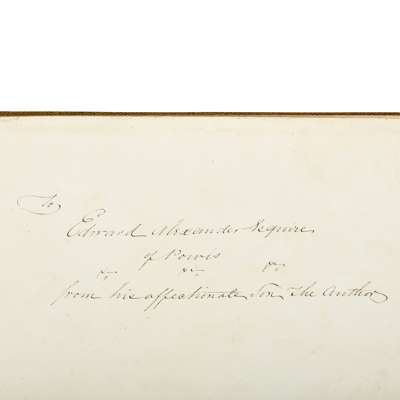 To
Edward Alexander Esquire
of Powis
&c. &c. &c.
from his affectionate Son The Author